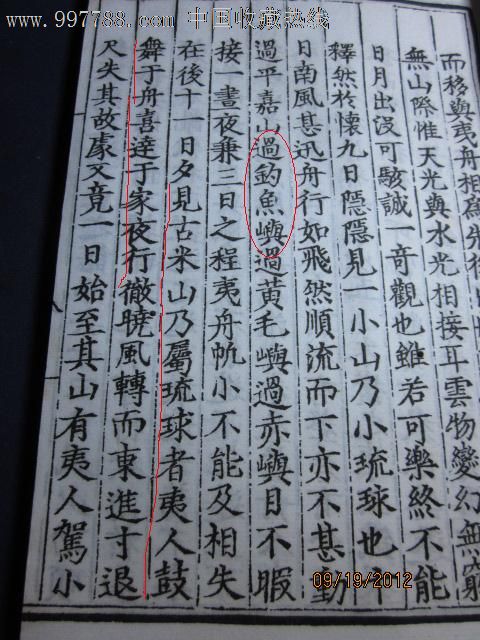 www.997788.com 中国收藏热线
而移與夷舟相為先後
無山際惟天光與水光相接耳雲物變幻無窮
日月出没可駭誠一奇觀也雖若可樂終不能
釋然於懷九日隱隱見一小山乃小琉球也十
日南風甚迅舟行如飛然順流而下亦不甚動
過平嘉山過釣魚嶼過黃毛嶼過赤嶼目不暇
接一晝夜兼三日之程夷舟帆小不能及相失
在後十一日夕見古米山乃屬琉球者夷人鼓
舞于舟喜達于家夜行徹曉風轉而東進寸退
尺失其故處又竟一日始至其山有夷人駕小
09/19/2012